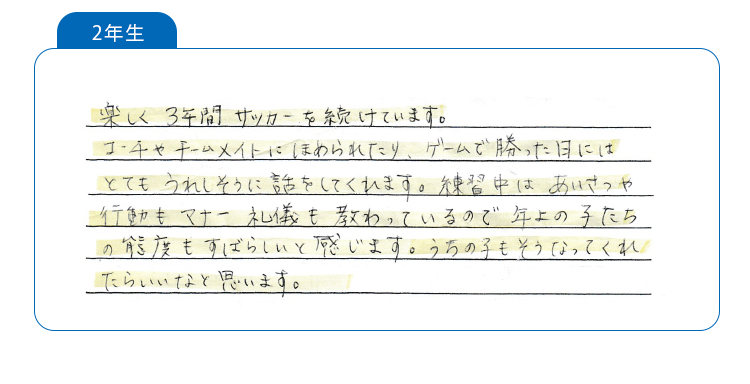 2年生
楽しく 3年間 サッカーを続けています。
コーチやチームメイトにほめられたり、ゲームで勝った日には
とても うれしそうに話をしてくれます。練習中は あいさつや
行動も マナー 礼儀も 教わっているので 年上の 子たち
の態度もすばらしいと感じます。うちの子もそうなってくれ
たらいいなと思います。